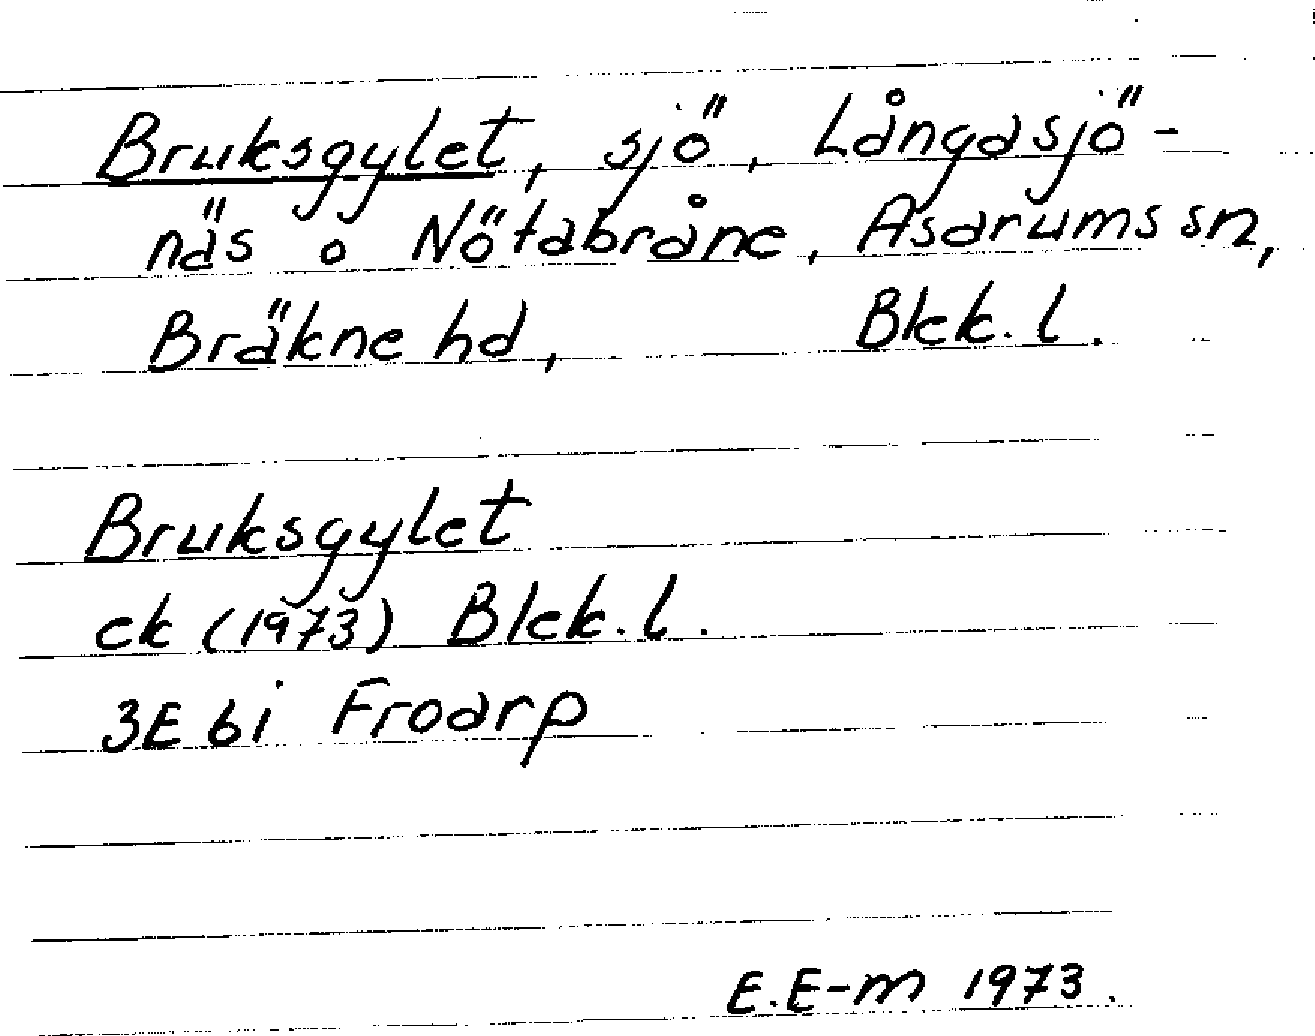 Bruksgylet, sjö, Långasjö-
näs o Nötabråne, Asarums sn,
Bräkne hd, Blek. l.
Bruksgylet
ek (1973) Blek. l.
3E 6i Froarp
E.E-m 1973.